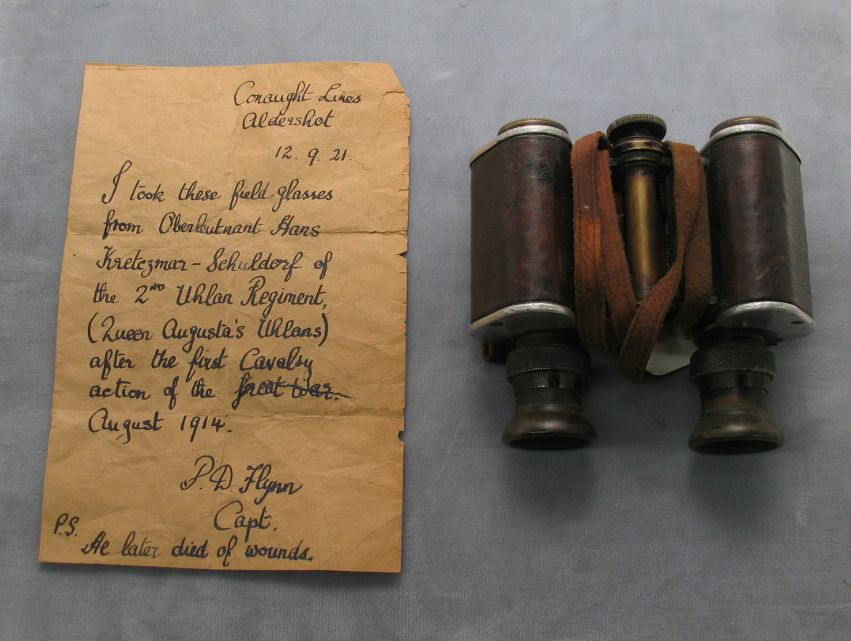 Conaught Lines
Aldershot
12. 9. 21.
I took these field glasses
from Oberleutnant Hans
Kretczmar-Schuldorf of
the 2ND Uhlan Regiment,
(Queen Augusta's Uhlans)
after the first Cavalry
action of the great war.
August 1914.
P. D. Flynn
Capt.
P.S.
He later died of wounds.